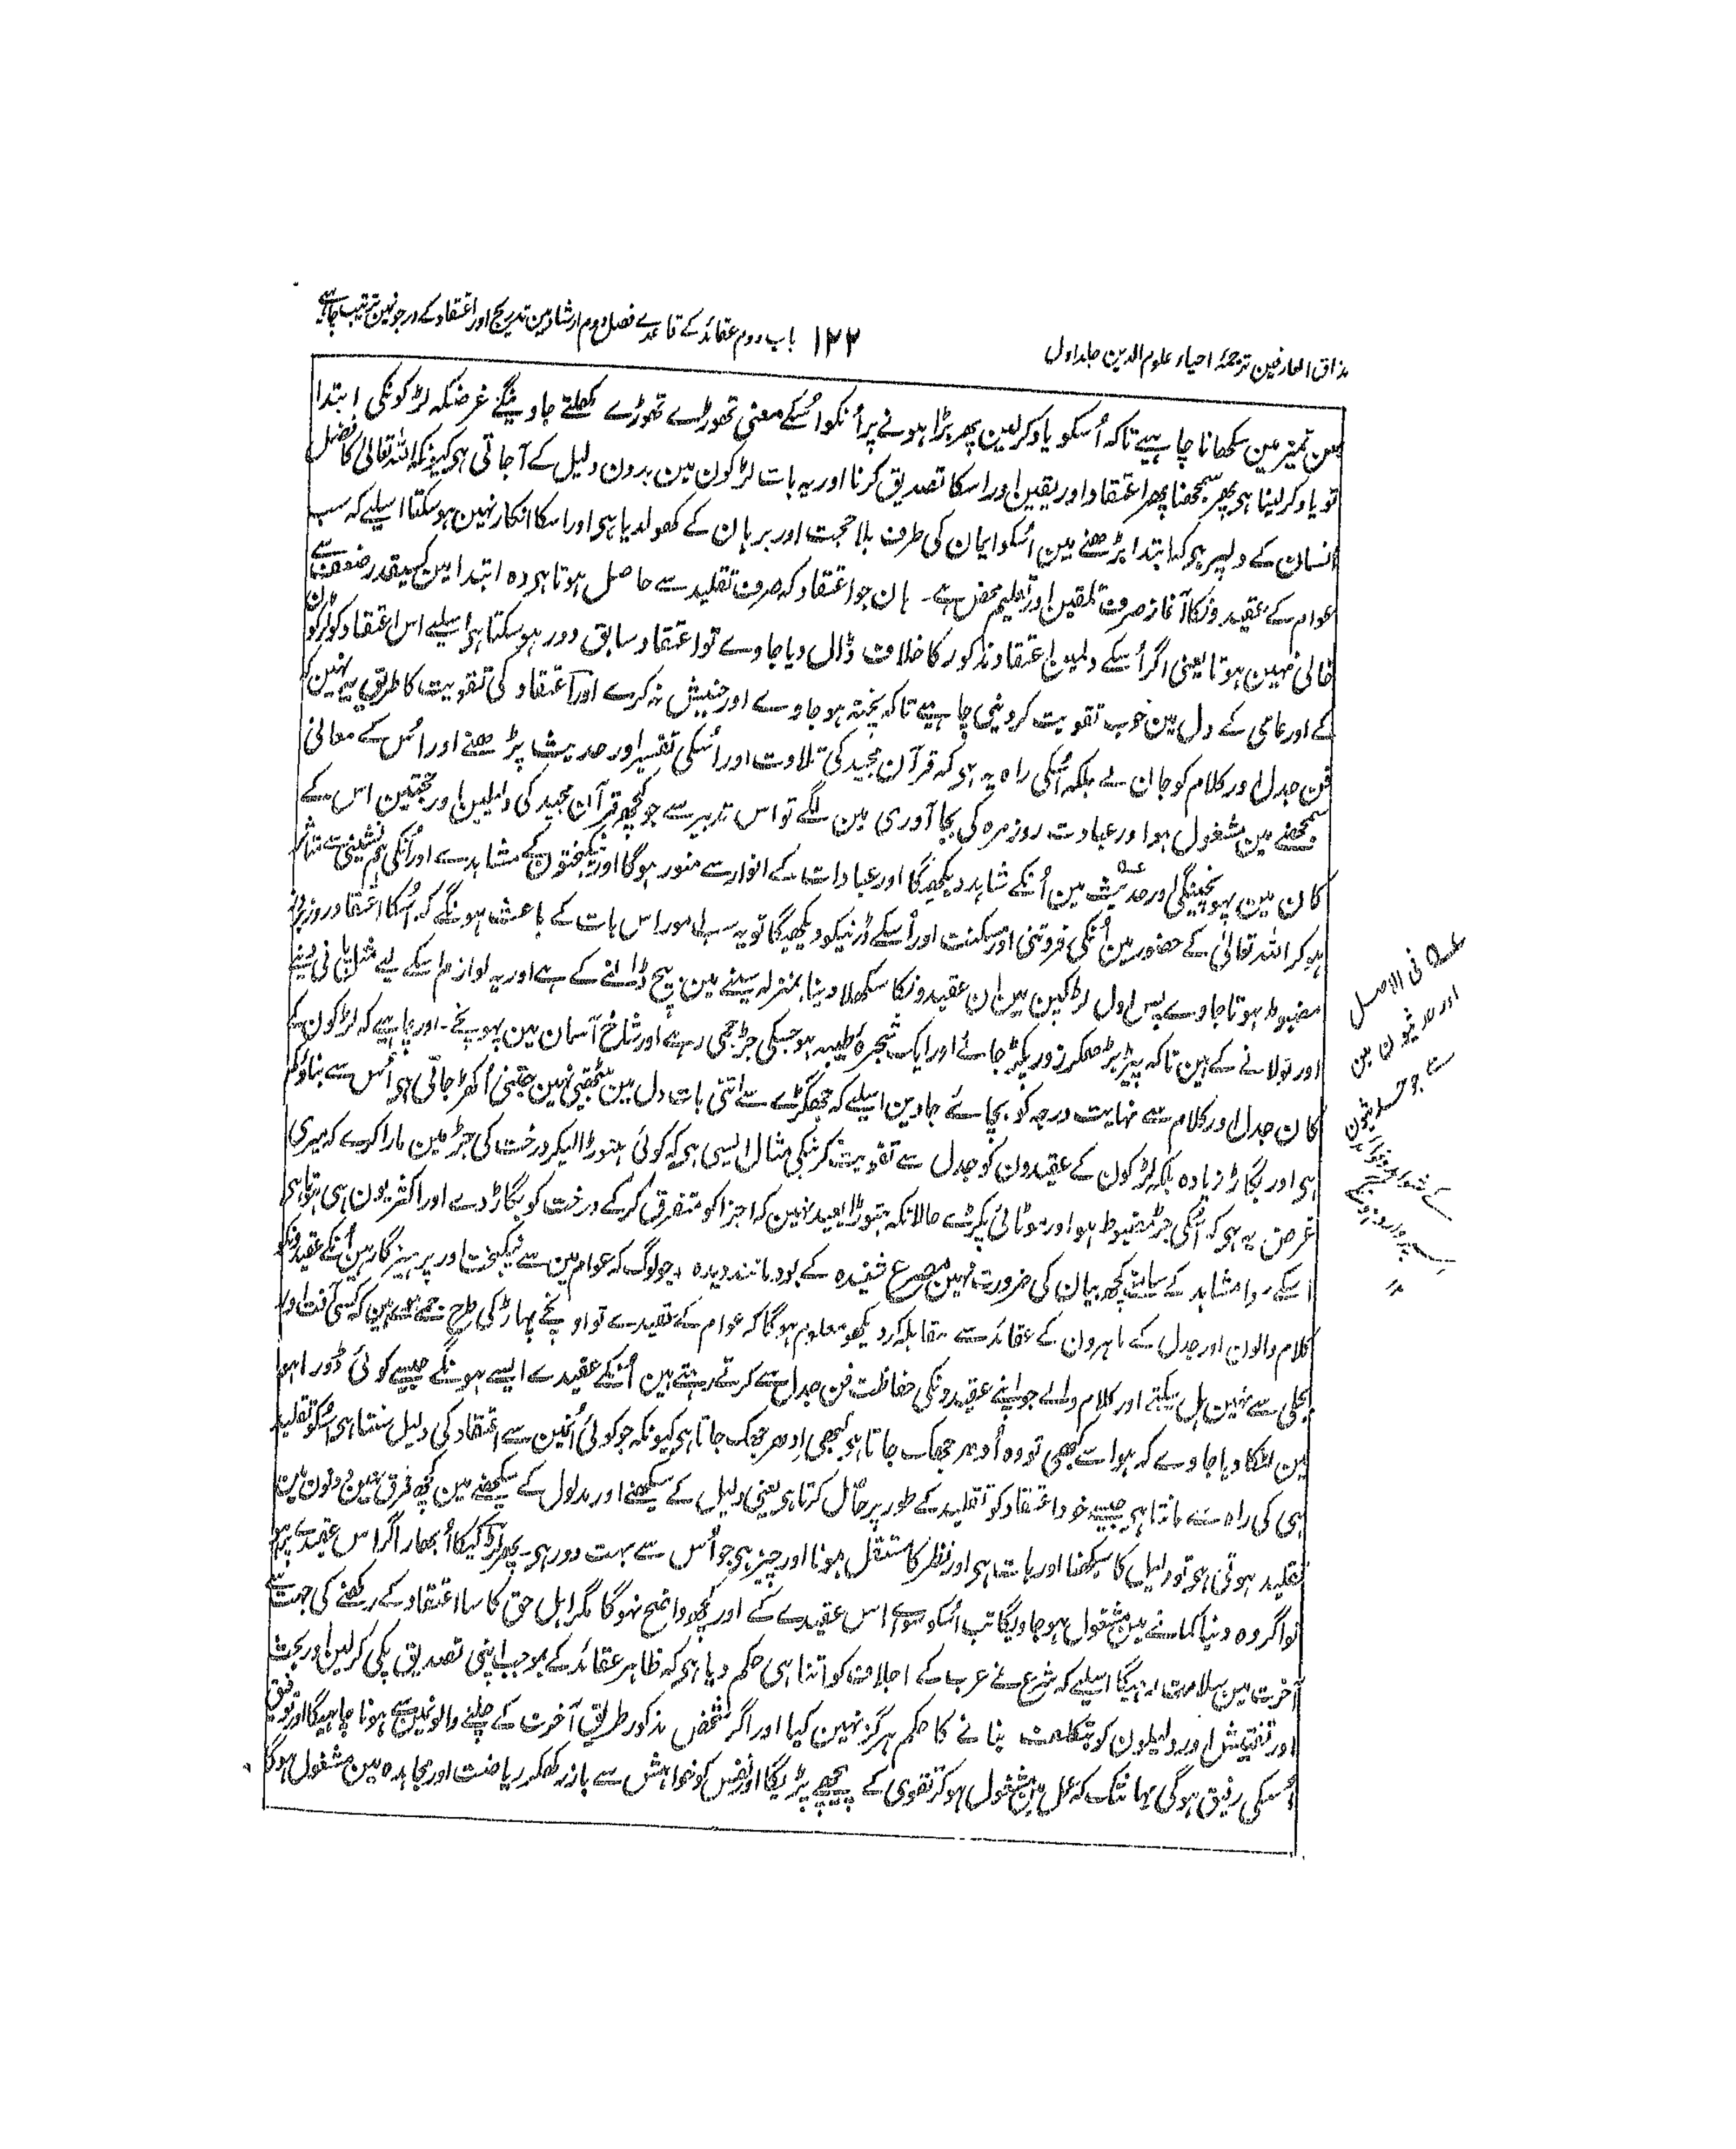 مذاق العارفین ترجمۂ احیاء علوم الدین جلد اول
۱۲۲
باب دوم عقائد کے قاعدے فصل دوم ارشاد مین تدریج اور اعتقاد کے درجونمین ترتیب چاہیے
سن تمیز مین سکھانا چاہیے تاکہ اُسکو یاد کرلین پھر بڑا ہونے پر اُنکو اُسکے معنی تھوڑے تھوڑے کھلتے جاوینگے غرضکہ لڑکونکی ابتدا
تو یاد کرلینا ہی پھر سمجھنا پھر اعتقاد اور یقین اور اسکا تصدیق کرنا اور یہ بات لڑکون مین بدون دلیل کے آجاتی ہی کیونکہ اللہ تعالیٰ کا فضل
انسان کے دلپر ہی کہ ابتدا بڑھنے مین اُسکو ایمان کی طرف بلا حجت اور برہان کے کھولدیا ہی اور اسکا انکار نہین ہوسکتا اسلیے کہ سب
عوام کے عقیدونکا آغاز صرف تلقین اور تعلیم محض ہے۔ ہان جو اعتقاد کہ صرف تقلید سے حاصل ہوتا ہی وہ ابتدا مین کسیقدر ضعف سے
خالی نہین ہوتا یعنی اگر اُسکے دلمین اعتقاد مذکور کا خلاف ڈال دیا جاوے تو اعتقاد سابق دور ہوسکتا ہی اسلیے اس اعتقاد کو لڑکون
کے اور عامی کے دل مین خوب تقویت کردینی چاہیے تاکہ پختہ ہوجاوے اور جنبش نہ کرے اور اعتقاد کی تقویت کا طریق یہ نہین کہ
فن جدل اور کلام کو جان لے بلکہ اُسکی راہ یہ ہی کہ قرآن مجید کی تلاوت اور اُسکی تفسیر اور حدیث پڑھنے اور اُس کے معانی
سمجھنے مین مشغول ہو اور عبادت روزمرہ کی بجاآوری مین لگے تو اس تدبیر سے جو کچھ قرآن مجید کی دلیلین اور حجتین اس کے
کان مین پہونچینگی اور حدیث مین اُنکے شاہد دیکھیگا اور عبادات کے انوار سے منور ہوگا اور نیکبختون کے مشاہدے اور اُنکی ہم نشینی سے متاثر
ہوکر اللہ تعالیٰ کے حضور مین اُنکی فروتنی اور مسکنت اور اُسکے ڈرنیکو دیکھیگا تو یہ سب امور اس بات کے باعث ہونگے کہ اُسکا اعتقاد روزبروز
مضبوط ہوتا جاوے پس اول لڑکپن مین ان عقیدونکا سکھلادینا بمنزلہ سینے مین بیج ڈالنے کے ہے اور یہ لوازم اسکے لیے مثل پانی دینے
اور نولانے کے ہین تاکہ پیڑ بڑھکر زور پکڑ جائے اور ایک شجرۂ طیبہ ہو جسکی جڑ جمی رہے اور شاخ آسمان مین پہونچے۔ اور چاہیے کہ لڑکون کے
کان جدل اور کلام سے نہایت درجہ کو بچائے جاوین اسلیے کہ جھگڑے سے اتنی بات دل مین جمتی نہین جتنی اُکھڑ جاتی ہی اُس سے بناؤ کم
ہی اور بگاڑ زیادہ بلکہ لڑکون کے عقیدون کو جدل سے تقویت کرنیکی مثال ایسی ہی کہ کوئی ہتوڑا لیکر درخت کی جڑ مین مارا کرے کہ میری
غرض یہ ہی کہ اُسکی جڑ مضبوط ہو اور موٹائی پکڑے حالانکہ ہتوڑا بعید نہین کہ اجزا کو متفرق کرکے درخت کو بگاڑ دے اور اکثر یون ہی ہوتا ہی
اسکے سوا مشاہد کے سامنے کچھ بیان کی ضرورت نہین مصرع شنیدہ کے بود مانند دیدہ۔ جو لوگ کہ عوام مین سے نیکبخت اور پرہیزگار ہین اُنکے عقیدونکو
کلام والون اور جدل کے ماہرون کے عقائد سے مقابلہ کر دیکھو معلوم ہوگا کہ عوام کے عقیدے تو اونچے پہاڑ کی طرح جمے ہوے ہین کہ کسی آفت اور
بجلی سے نہین ہل سکتے اور کلام والے جو اپنے عقیدونکی حفاظت فن جدل سے کرتے رہتے ہین اُنکے عقیدے ایسے ہونگے جیسے کوئی ڈورا ہوا
مین لٹکا دیا جاوے کہ ہوا سے کبھی تو وہ اُدھر جھک جاتا ہی کبھی اِدھر جھک جاتا ہی کیونکہ جو کوئی اُنمین سے اعتقاد کی دلیل سنتا ہی اُسکو تقلید
ہی کی راہ سے مانتا ہی جیسے خود اعتقاد کو تقلید کے طور پر حاصل کرتا ہی یعنی دلیل کے سیکھنے اور مدلول کے سیکھنے مین کچھ فرق نہین دونون مین
تقلید ہوتی ہی تو دلیل کا سیکھنا اور بات ہی اور نظر کا مستقل ہونا اور چیز ہی جو اُس سے بہت دور ہی۔ پھر لڑکیکا اُبھار اگر اس عقیدے پر ہو
تو اگر وہ دنیا کمانے مین مشغول ہوجاویگا تب اُسکو سوائے اس عقیدے کے اور کچھ واضح نہوگا مگر اہل حق کا سا اعتقاد کے رکھنے کی جہت سے
آخرت مین سلامت رہیگا اسلیے کہ شرع نے عرب کے اجلاف کو اتنا ہی حکم دیا ہی کہ ظاہر عقائد کے بموجب اپنی تصدیق پکی کرلین اور بحث
اور تفتیش اور دلیلون کو بتکلف بنانے کا حکم ہرگز نہین کیا اور اگر شخص مذکور طریق آخرت کے چلنے والونمین سے ہونا چاہیگا اور توفیق
اُسکی رفیق ہوگی یہانتک کہ عمل مین مشغول ہوکر تقویٰ کے پیچھے پڑیگا اور نفس کو خواہش سے باز رکھکر ریاضت اور مجاہدہ مین مشغول ہوگا
عہ فی الاصل
اور حدیثون مین
۱۲